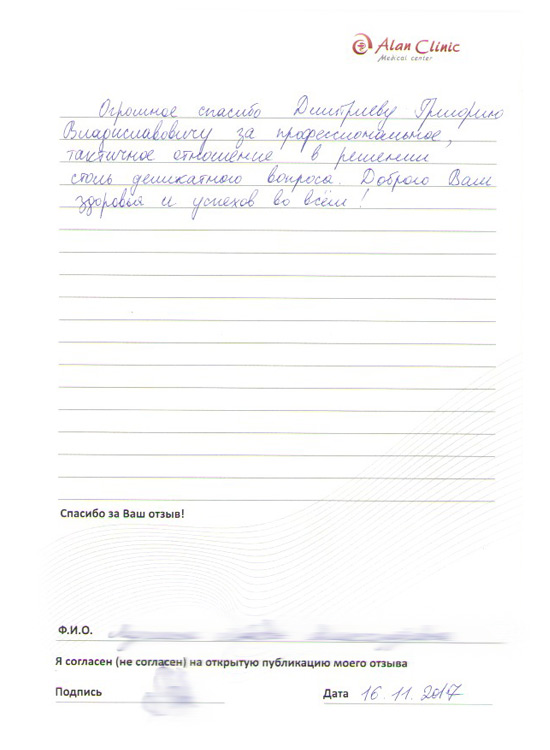 Alan Clinic
Medical center
Огромное спасибо Дмитриеву Григорию
Владиславовичу за профессиональное,
тактичное отношение в решении
столь деликатного вопроса. Доброго Вам
здоровья и успехов во всём!
Спасибо за Ваш отзыв!
Ф.И.О.
Я согласен (не согласен) на открытую публикацию моего отзыва
Подпись
Дата 16.11.2017